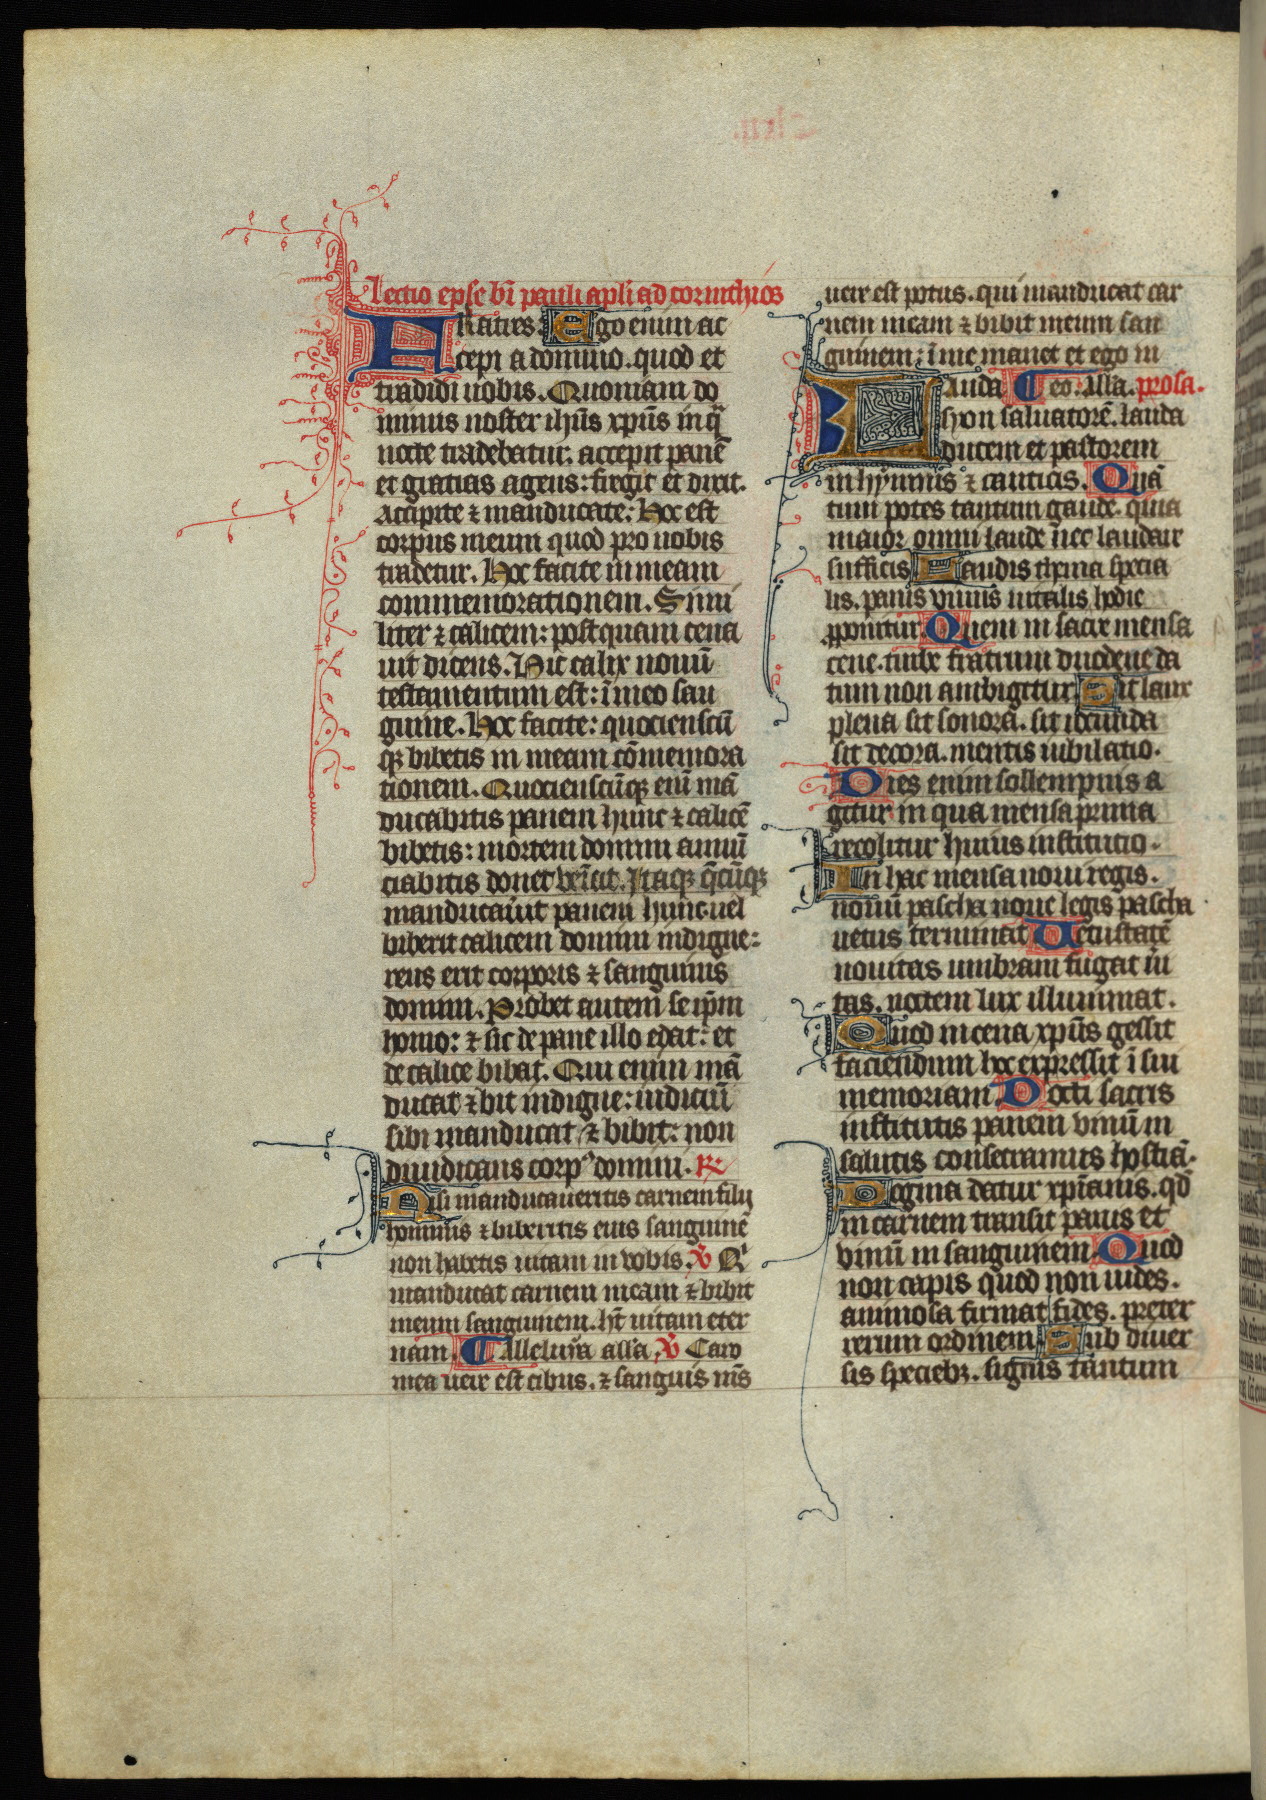 Lectio epłe bī pauli apłi ad corinthios
Fratres Ego enim ac
cepi a domino. quod et
tradidi uobis. Quoniam do
minus noster ihūs xpūs in q̄
nocte tradebatur. accepit panē
et gratias agens: fregit et dixit.
Accipite ⁊ manducate: Hoc est
corpus meum quod pro uobis
tradetur. Hoc facite in meam
commemorationem. Simi
liter ⁊ calicem: postquam cena
uit dicens. Hic calix nouū
testamentum est: ī meo san
guine. Hoc facite: quocienscū
qꝫ bibetis in meam cōmemora
tionem. Quocienscūqꝫ enī mā
ducabitis panem hunc ⁊ calicē
bibetis: mortem domini annū
ciabitis donec ueīat. Itaqꝫ q̄cūqꝫ
manducauīt panem hunc uel
biberit calicem domini indigne:
reus erit corporis ⁊ sanguinis
domini. Probet autem se ip̄m
homo: ⁊ sic de pane illo edat: et
de calice bibat. Qui enim mā
ducat ⁊ bit indigne: iudiciū
sibi manducat ⁊ bibit: non
diiudicans corpꝰ domini. R̷
Nisi manducaueritis carnem filij
hominis ⁊ biberitis eius sanguinē
non habetis uitam in vobis. V̷ Qⁱ
manducat carnem meam ⁊ bibit
meum sanguinem. ht̄ uitam eter
nam. Alleluīa alla. V̷ Caro
mea uere est cibus. ⁊ sanguis mīs
uere est potus. qui manducat car
nem meam ⁊ bibit meum san
guinem: ī me manet et ego in
Lauda eo. Alla. prosa.
syon saluatorē. lauda
ducem et pastorem
in hymnis ⁊ canticis. Quā
tum potes tantum gaude. quia
maior omni laude nec laudare
sufficis Laudis thema specia
lis. panis viuus uitalis hodie
ꝓponitur. Quem in sacre mensa
cene. turbe fratrum duodene da
tum non ambigitur Sit laux
plena sit sonora. sit iocunda
sit decora. mentis iubilatio.
Dies enim sollempnis a
gitur in qua mense prima
recolitur huius institutio.
In hac mensa noui regis.
nouū pascha noue legis pascha
uetus terminat Uetustatē
nouitas umbram fugat ūi
tas. noctem lux illuminat.
Quod in cena xpūs gessit
faciendum hoc expressit ī sui
memoriam. Docti sacris
institutis panem vinū in
salutis consecramus hostiā.
Dogma datur xpīanis. qđ
in carnem transit panis et
vinū in sanguinem. Quod
non capis quod non uides.
animosa firmat fides. preter
rerum ordinem Sub diuer
sis speciebꝫ. signis tantum